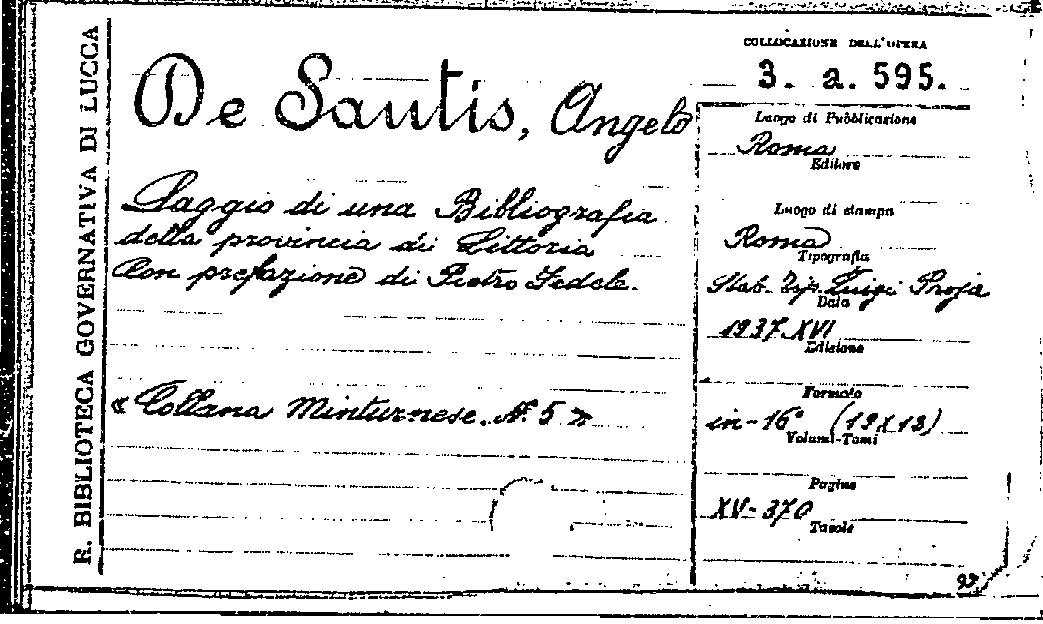 R. BIBLIOTECA GOVERNATIVA DI LUCCA
De Santis, Angelo
Saggio di una Bibliografia
della provincia di Littoria
Con prefazione di Pietro Fedele.
« Collana Minturnese. N. 5 »
COLLOCAZIONE DELL'OPERA
3. a. 595.
Luogo di Pubblicazione
Roma
Editore
Luogo di stampa
Roma
Tipografia
Stab. Tip. Luigi Proja
Data
1937-XVI
Edizione
Formato
in-16° (19x13)
Volumi-Tomi
Pagine
XV-370
Tavole